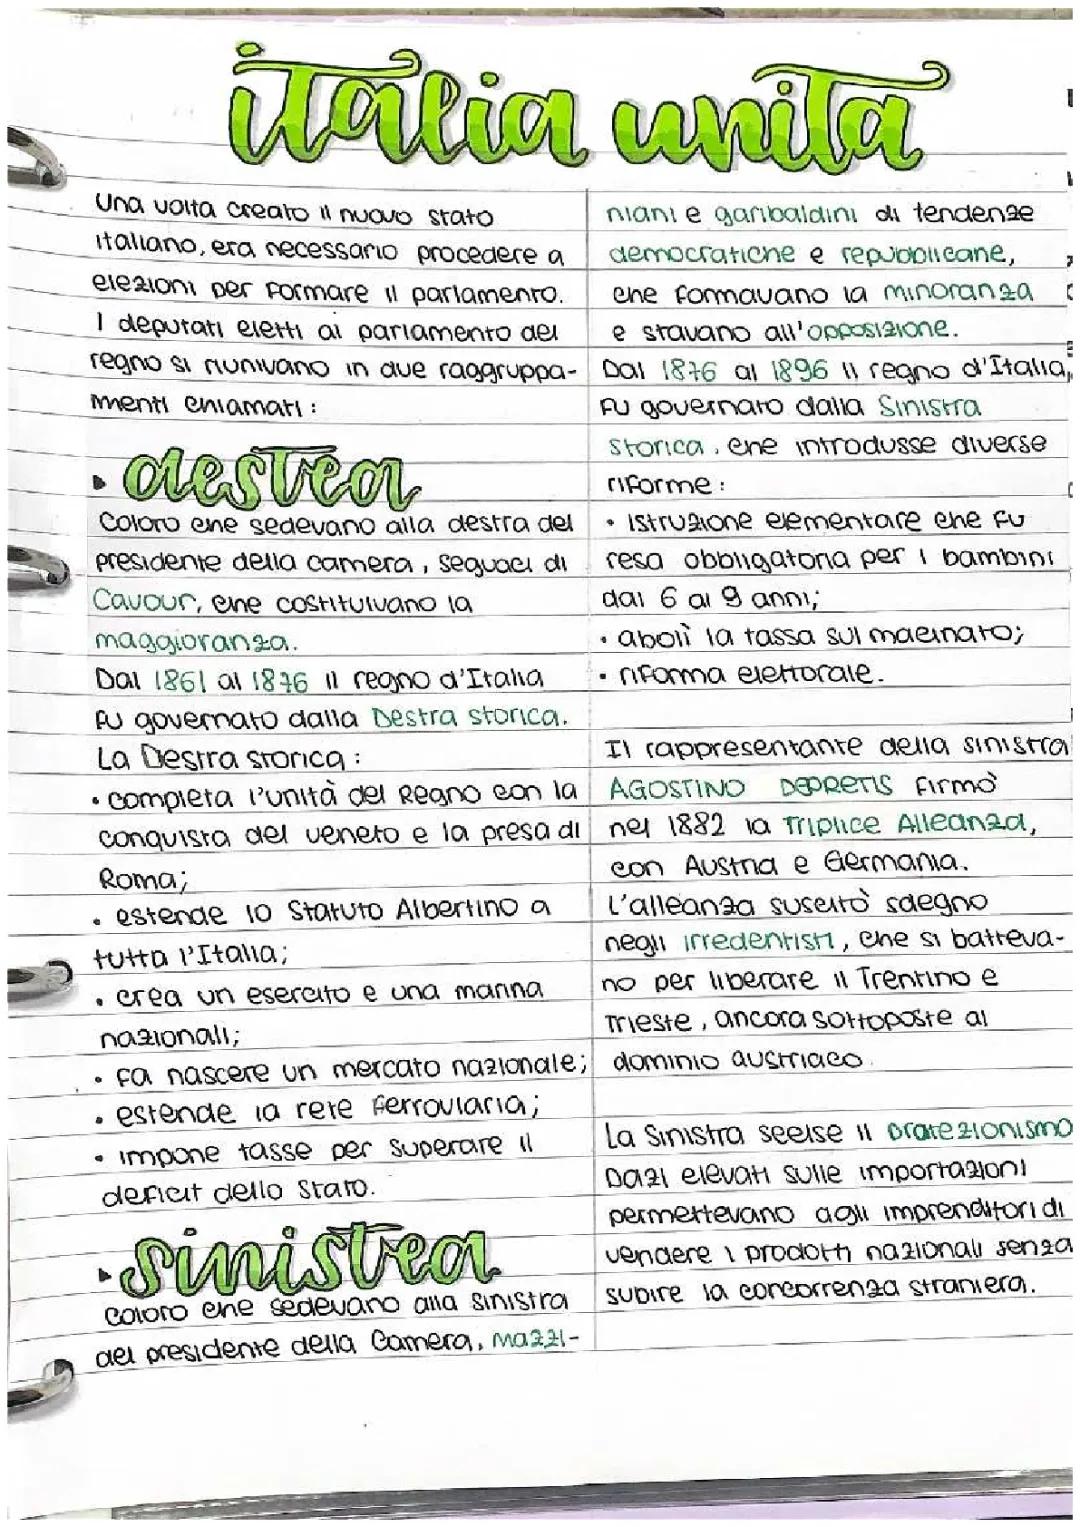 italia unita
Una volta creato il nuovo stato
italiano, era necessario procedere a
elezioni per formare il parlamento.
I deputati eletti al parlamento del
regno si riunivano in due raggruppa-
menti chiamati:
▸ destra
Coloro che sedevano alla destra del
presidente della camera, seguaci di
Cavour, che costituivano la
maggioranza.
Dal 1861 al 1876 il regno d'Italia
fu governato dalla Destra storica.
La Destra storica:
• completa l'unità del Regno con la
conquista del veneto e la presa di
Roma;
• estende lo Statuto Albertino a
tutta l'Italia;
• crea un esercito e una marina
nazionali;
• fa nascere un mercato nazionale;
• estende la rete ferroviaria;
• impone tasse per superare il
deficit dello Stato.
▸ sinistra
Coloro che sedevano alla sinistra
del presidente della Camera, mazzi-
niani e garibaldini di tendenze
democratiche e repubblicane,
che formavano la minoranza
e stavano all'opposizione.
Dal 1876 al 1896 il regno d'Italia,
fu governato dalla Sinistra
Storica, che introdusse diverse
riforme:
• istruzione elementare che fu
resa obbligatoria per i bambini
dai 6 ai 9 anni;
• abolì la tassa sul macinato;
• riforma elettorale.
Il rappresentante della sinistra
AGOSTINO DEPRETIS firmò
nel 1882 la Triplice Alleanza,
con Austria e Germania.
L'alleanza suscitò sdegno
negli irredentisti, che si batteva-
no per liberare il Trentino e
Trieste, ancora sottoposte al
dominio austriaco.
La Sinistra scelse il protezionismo
Dazi elevati sulle importazioni
permettevano agli imprenditori di
vendere i prodotti nazionali senza
subire la concorrenza straniera.